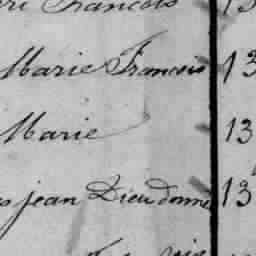 ri Francois 13
Marie Francois 13
Marie 13
s jean Dieudonne 13